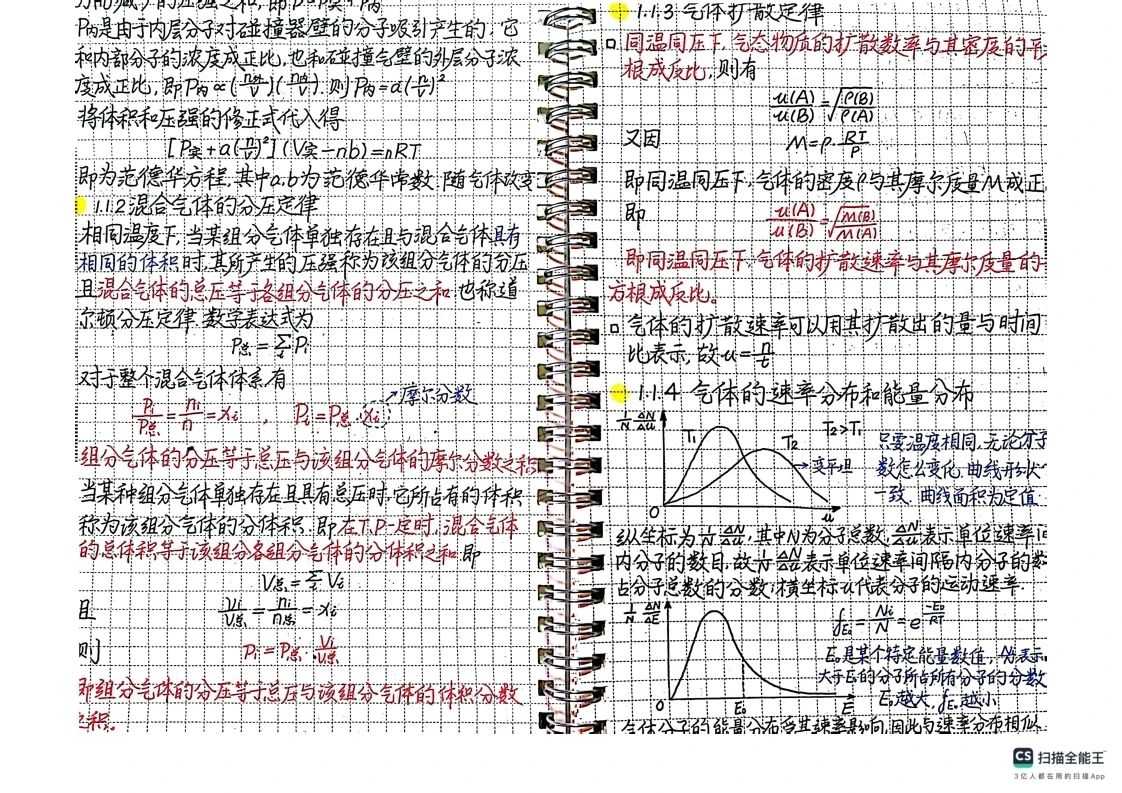 P内是由于内层分子对碰撞器壁的分子吸引产生的,它
和内部分子的浓度成正比,也和碰撞气壁的外层分子浓
度成正比,即P内∝(n内/V)(n外/V).则P内=a(n/V)²
将体积和压强的修正式代入得
[P实+a(n/V)²](V实-nb)=nRT
即为范德华方程,其中a.b为范德华常数,随气体改变
1.1.2 混合气体的分压定律
相同温度下,当某组分气体单独存在且与混合气体具有
相同的体积时,其所产生的压强称为该组分气体的分压
且混合气体的总压等于各组分气体的分压之和,也称道
尔顿分压定律.数学表达式为
P总=∑Pi
对于整个混合气体体系有
摩尔分数
Pi/P总=ni/n=xi , Pi=P总·xi
组分气体的分压等于总压与该组分气体的摩尔分数之积
当某种组分气体单独存在且具有总压时,它所占有的体积
称为该组分气体的分体积.即在T.P一定时,混合气体
的总体积等于该组分各组分气体的分体积之和.即
V总=∑Vi
且 Vi/V总=ni/n总=xi
则 Pi=P总·Vi/V总
即组分气体的分压等于总压与该组分气体的体积分数
之积.
1.1.3 气体扩散定律
同温同压下,气态物质的扩散数率与其密度的平
根成反比,则有
u(A)/u(B)=√ρ(B)/ρ(A)
又因 M=ρ·RT/P
即同温同压下,气体的密度ρ与其摩尔质量M成正
即 u(A)/u(B)=√M(B)/M(A)
即同温同压下,气体的扩散速率与其摩尔质量的
方根成反比。
气体的扩散速率可以用其扩散出的量与时间
比表示,故u=n/t
1.1.4 气体的速率分布和能量分布
1/N ΔN/Δu
T₁
T₂
T₂>T₁
变平坦
O
u
只要温度相同,无论分子
数怎么变化,曲线形状
一致,曲线面积为定值
纵坐标为1/N ΔN/Δu,其中N为分子总数,ΔN/Δu表示单位速率间
内分子的数目,故1/N ΔN/Δu表示单位速率间隔内分子的数
占分子总数的分数;横坐标u代表分子的运动速率.
1/N ΔN/ΔE
O
E₀
E
fE₀=Ni/N=e^(-E₀/RT)
E₀是某个特定能量数值,
大于E₀的分子所占所有分子的分数
E₀越大,fE₀越小
气体分子的能量分布受其速率影响,因此与速率分布相似
CS 扫描全能王
3亿人都在用的扫描App